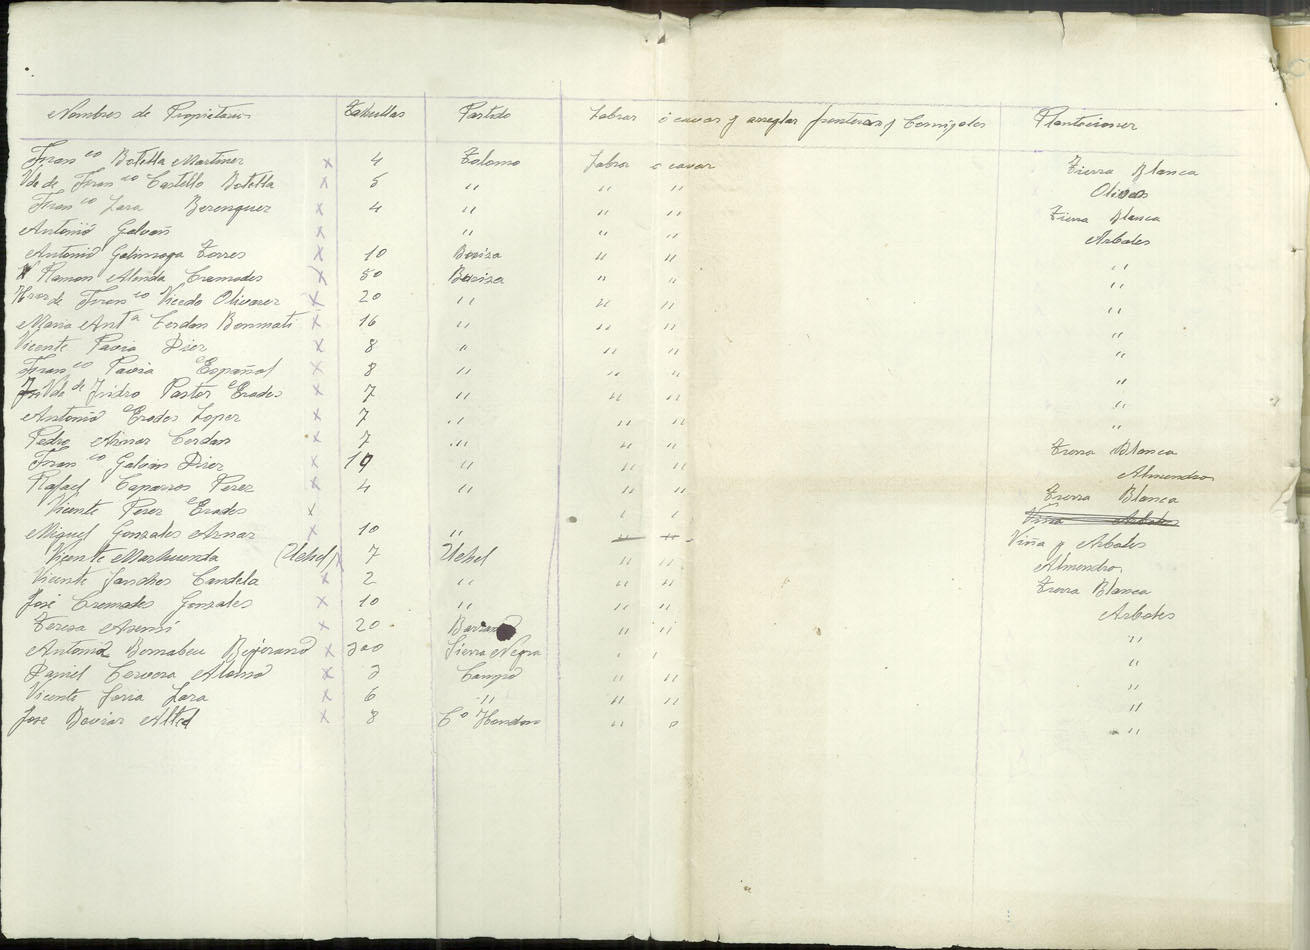 Nombres de Propietarios Tahullas Partido Labrar ó cavar y arreglar fronteras y Plantaciones
Fran co Botella Martinez x 4 Labrar o cavar Tierra Blanca
Vda de Fran co Castello Botella x 5 " " " Olivos
Fran co Lara Berenguer x 4 " " " Tierra Blanca
Antonio Galvañ x " " " Arboles
Antonio Galinsoga Torres x 10 " " "
X Ramon Almida Cremades x 50 " " "
Hros de Fran co Vicedo Olivares x 20 " " " "
Maria Ant a Cerdan Bonmati x 16 " " " "
Vicente Pavia Diez x 8 " " " "
Fran co Pavia Español x 8 " " " "
Vda de Isidro Pastor Erades x 7 " " " "
Antonio Erades Lopez x 7 " " " "
Pedro Aznar Cerdan x 7 " " " Tierra Blanca
Fran co Galvan Diez x 19 " " " Almendros
Rafael Caparros Perez x 4 " " " Tierra Blanca
Vicente Perez Erades x " " Viña Arboles
Miguel Gonzales Aznar x 10 " " " Viña y Arboles
Vicente Marhuenda (Uchel) x 7 Uchel " " Almendros
Vicente Sanches Candela x 2 " " " Tierra Blanca
José Cremades Gonzales x 10 " " " Arboles
Teresa Asensi x 20 " " "
Antonio Bernabeu Bejerano x 200 Sierra Negra " " "
Daniel Cervera Alonso x 3 Campo " " "
Vicente Soria Lara x 6 " " " "
José Alted x 8 C o Hondon " " "